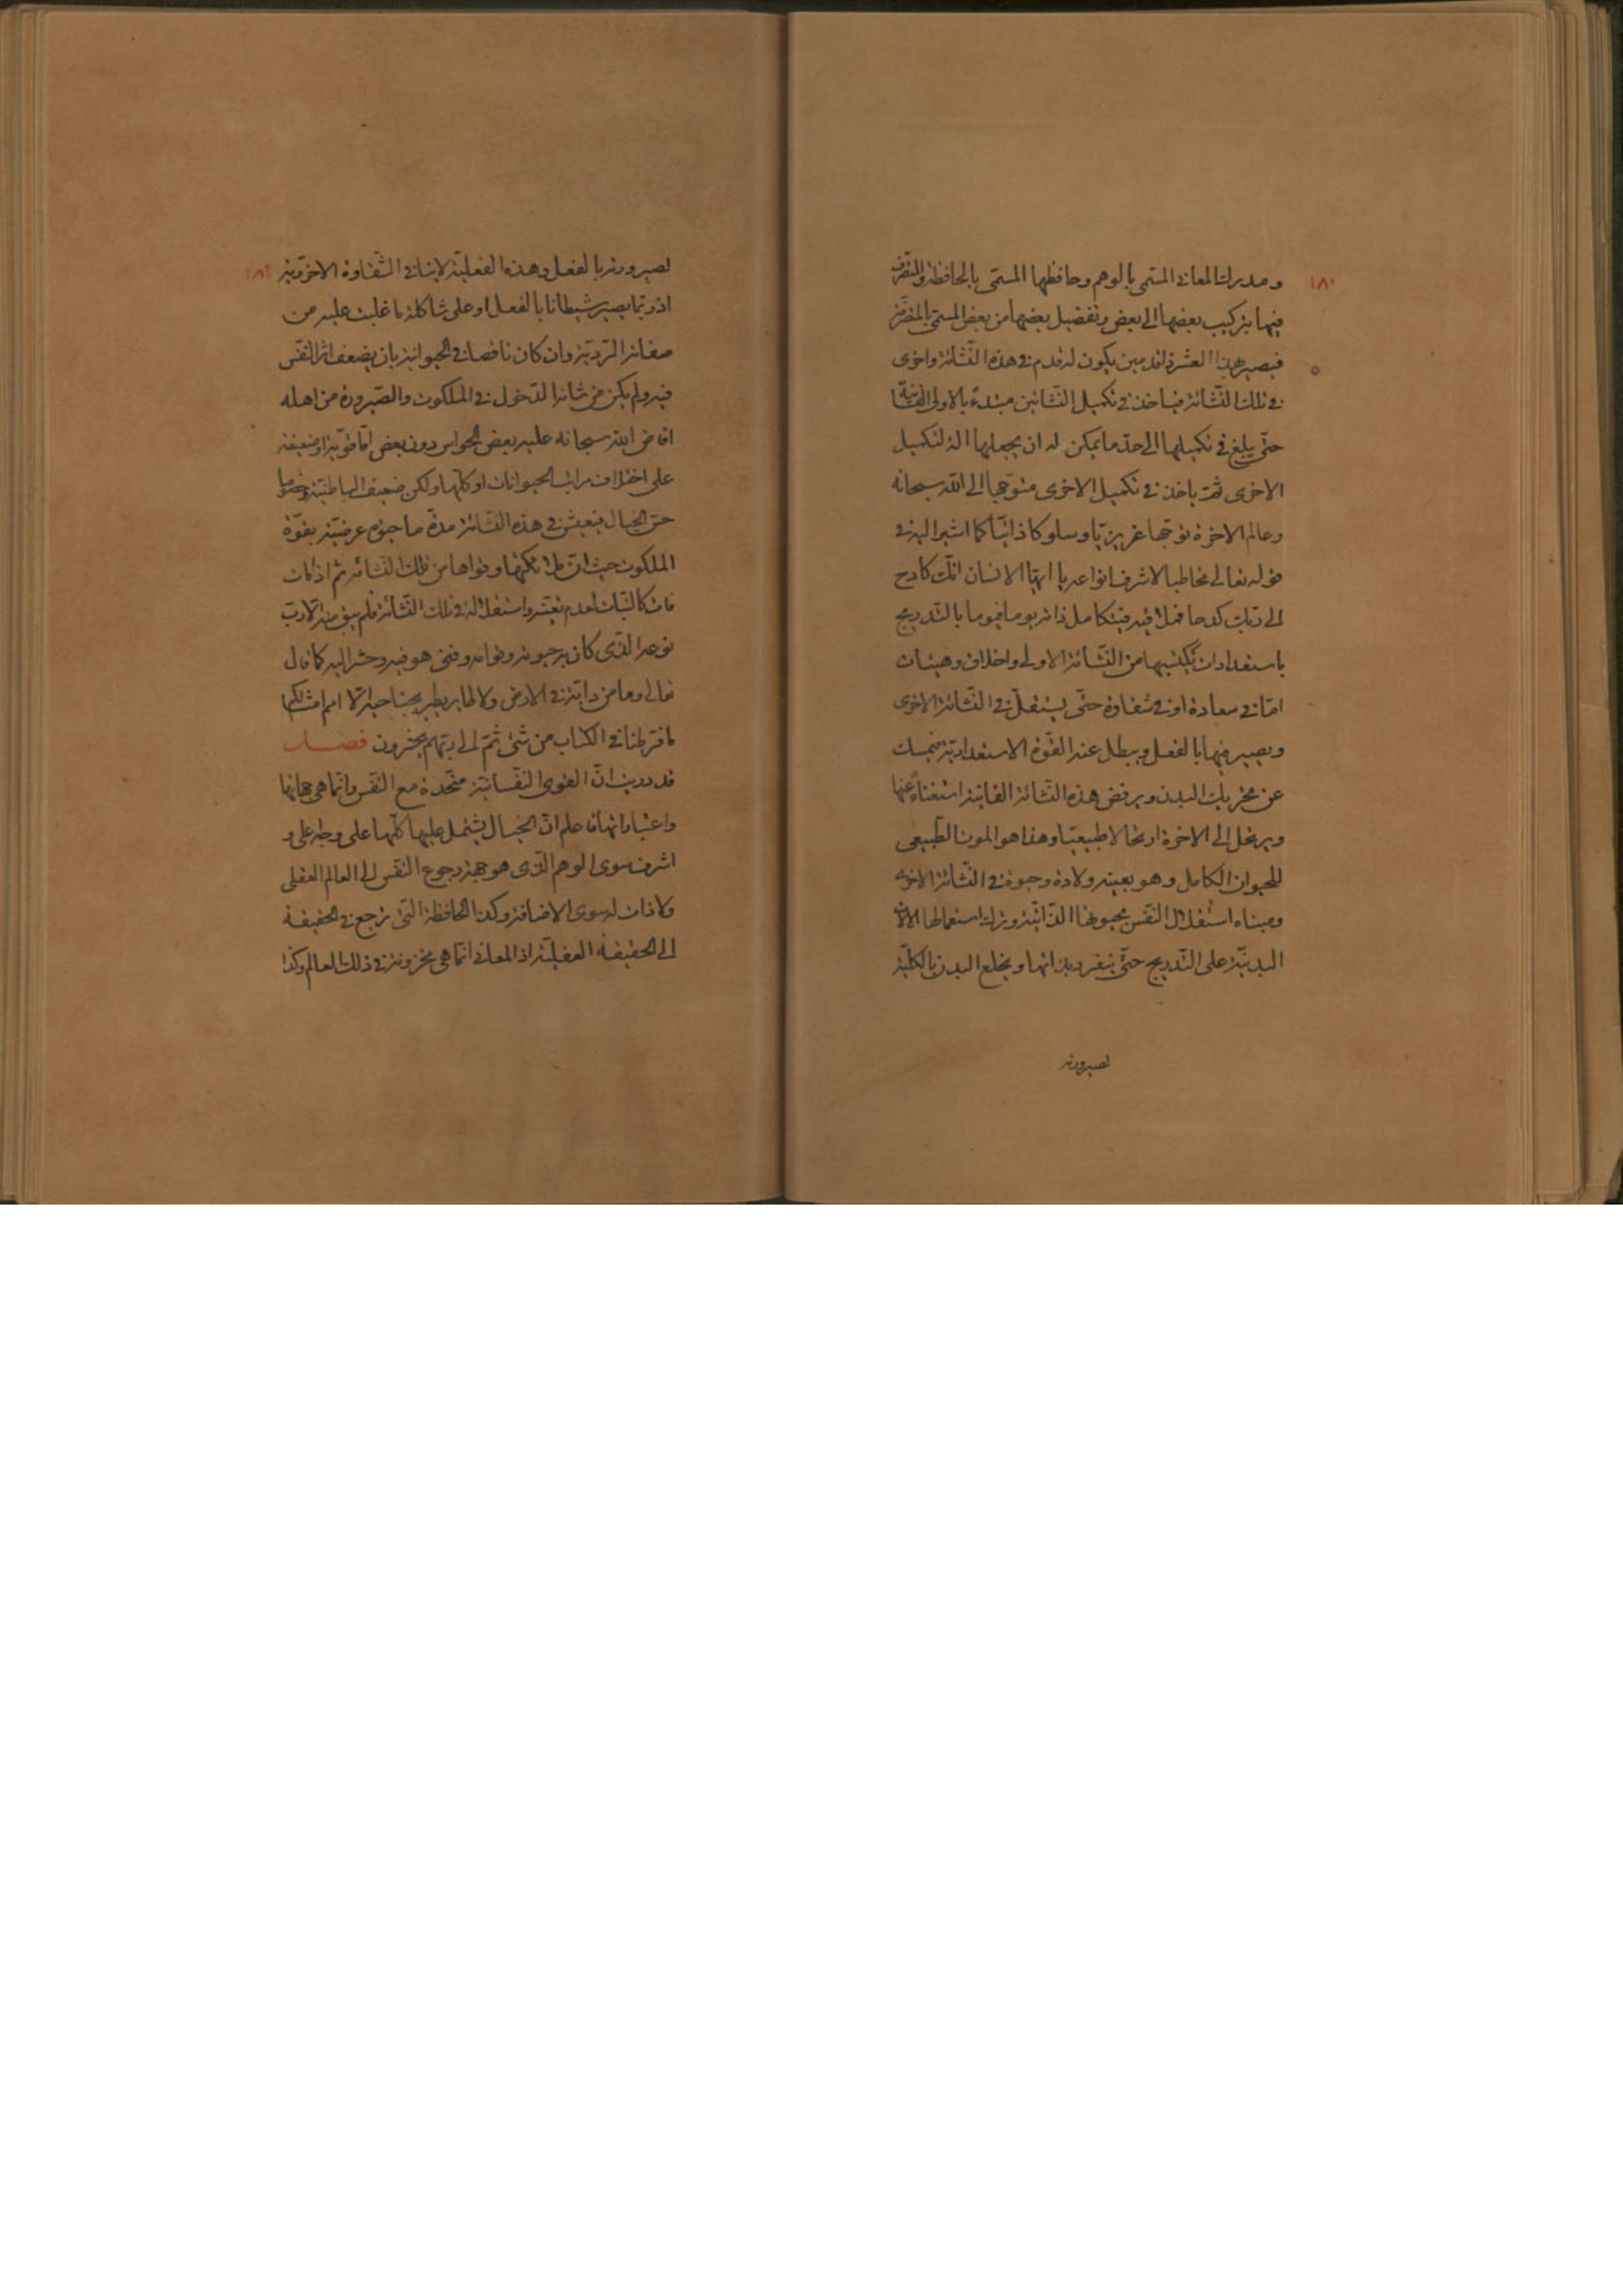 ١٨٠
ومدرك المعاني المسمى بالوهم وحافظها المسمّى بالحافظة والمتصرّف
فيها بتركيب بعضها الى بعض وتفصيل بعضها من بعض المسمّى بالمتصرّفة
فيصير بهذا العشرة ذا قدمين يكون له قدم في هذه النّشأة واخرى
في تلك النّشأة فياخذ في تكميل النّشأتين مبتدءً بالاولى
حتّى يبلغ في تكميلها الى حدّ ما يمكن له ان يجعلها الة لتكميل
الاخرى ثمّ ياخذ في تكميل الاخرى متوجّها الى الله سبحانه
وعالم الاخرة توجّها غريزيّا وسلوكا ذاتيّا كما اشير اليه في
قوله تعالى مخاطبا لاشرف انواعه يا ايّها الانسان انّك كادح
الى ربّك كدحا فملاقيه فيتكامل ذاته يوما فيوما بالتّدريج
باستعدادات يكتسبها من النّشأة الاولى واخلاق وهيئات
امّا في سعادة او في شقاوة حتّى يستقلّ في النّشأة الاخرى
ويصير فيها بالفعل ويبطل عنه القوّة الاستعداديّة فيمسك
عن تحريك البدن ويرفض هذه النّشأة الفانية استغناءً عنها
ويرتحل الى الاخرة ارتحالا طبيعيّا وهذا هو الموت الطّبيعي
للحيوان الكامل وهو بعينه ولادة وحيوة في النّشأة الاخرى
ومبناه استقلال النّفس بحيوتها الذّاتيّة وترك استعمالها الالات
البدنيّة على التّدريج حتّى ينفرد بذاتها ويخلع البدن بالكليّة
لصيرورته
١٨١
لصيرورته بالفعل وهذه الفعليّة لا ينافي الشّقاوة الاخرويّة
اذ ربّما يصير شيطانا بالفعل او على شاكلة ما غلبت عليه من
صفاته الرّديّة وان كان ناقصا في الحيوانيّة بان يضعف اثر النّفس
فيه ولم يكن من شانه الدّخول في الملكوت والصّيرورة من اهله
افاض الله سبحانه عليه بعض الحواس دون بعض امّا قويّة او ضعيفة
على اختلاف مراتب الحيوانات او كلّها ولكن ضعيف الباطنيّة وخصوصا
حسّ الخيال فيعيش في هذه النّشأة مدّة ما حيوة عرضيّة بقوّة
الملكوت حيث انّ ملائكتها وقواها من تلك النّشأة ثم اذا مات
فات كالنّبات لعدم تعيّنه واستقلاله في تلك النّشأة فلم يبق منه الّا ربّ
نوعه الّذي كان به حيوته وقوامه وفنى هو فيه وحشر اليه كما قال
تعالى وما من دابّة في الارض ولا طاير يطير بجناحيه الّا امم امثالكم
ما فرّطنا في الكتاب من شئ ثمّ الى ربّهم يحشرون فصل
قد دريت انّ القوى النّفسانيّة متّحدة مع النّفس وانّما هي جهاتها
واعتباراتها فاعلم انّ الخيال يشتمل عليها كلّها على وجه اعلى و
اشرف سوى الوهم الّذى هو جهة رجوع النّفس الى العالم العقلى
ولا ذات له سوى الاضافة وكذا الحافظة الّتى ترجع في الحقيقة
الى الحقيقة العقليّة اذ المعاني انّما هي مخزونة في ذلك العالم وكذا